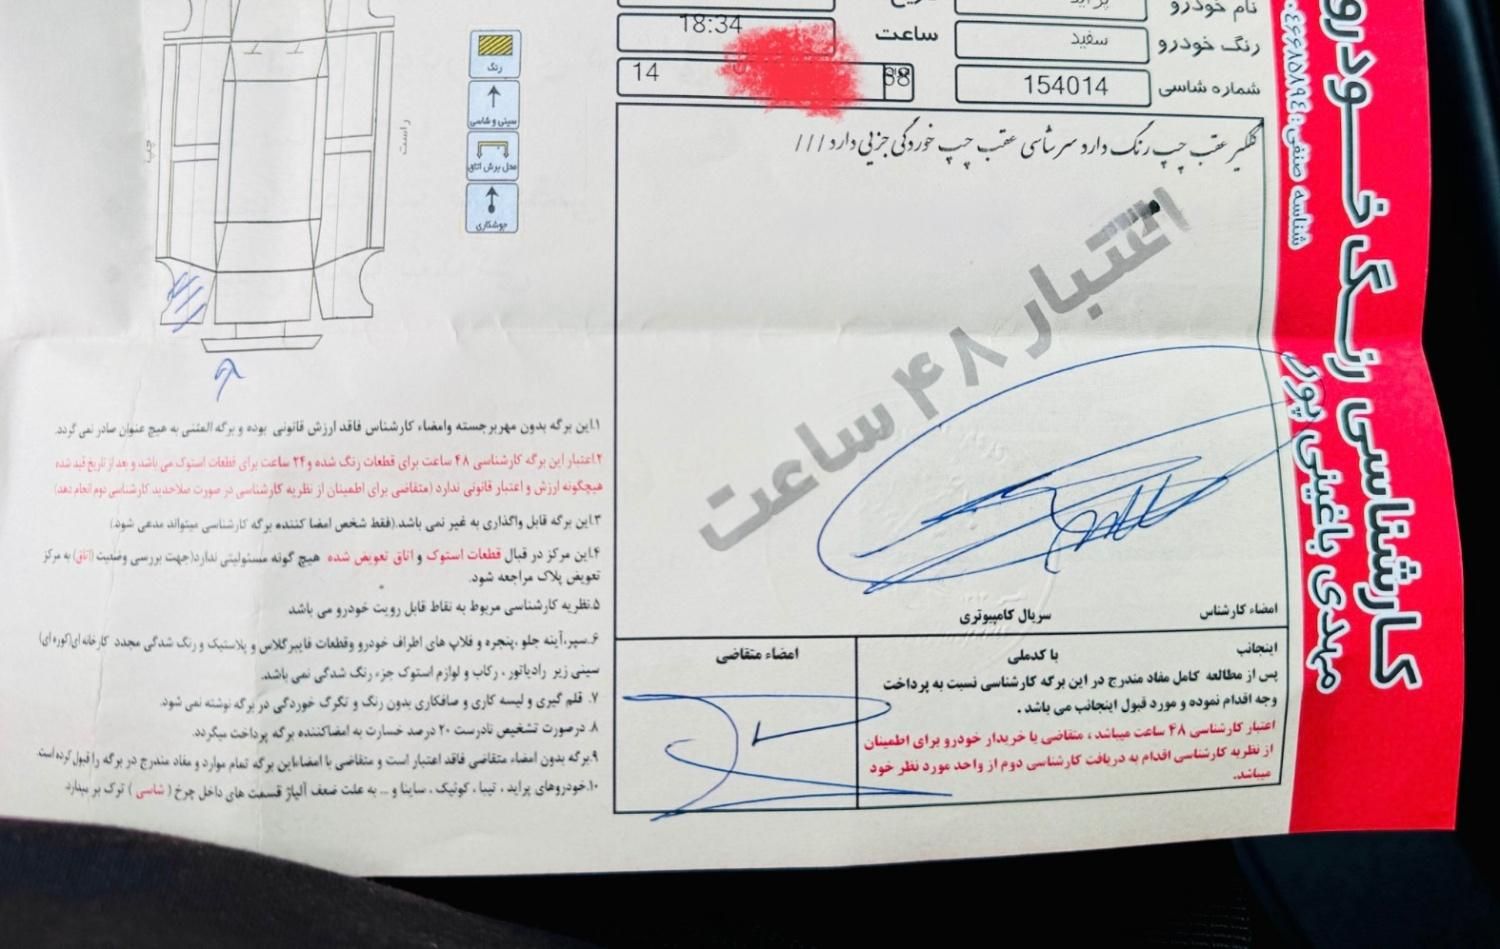 کارشناسی رنگ خودرو
مهدی باغینی پور
شناسه صنفی: ۰۴۶۶۸۵۸۹۴
نام خودرو
پراید
رنگ خودرو
سفید
ساعت
18:34
شماره شاسی
154014
14
گلگیر عقب چپ رنگ دارد سرشاسی عقب چپ خوردگی جزیی دارد / / /
اعتبار ۴۸ ساعت
رنگ
سینی و شاسی
محل برش اتاق
جوشکاری
راست
چپ
۱.این برگه بدون مهربرجسته وامضاء کارشناس فاقد ارزش قانونی بوده و برگه المثنی به هیچ عنوان صادر نمی گردد.
۲.اعتبار این برگه کارشناسی ۴۸ ساعت برای قطعات رنگ شده و۲۴ ساعت برای قطعات استوک می باشد و بعد از تاریخ قید شده
هیچگونه ارزش و اعتبار قانونی ندارد (متقاضی برای اطمینان از نظریه کارشناسی در صورت صلاحدید کارشناسی دوم انجام دهد)
۳.این برگه قابل واگذاری به غیر نمی باشد.(فقط شخص امضا کننده برگه کارشناسی میتواند مدعی شود)
۴.این مرکز در قبال قطعات استوک و اتاق تعویض شده هیچ گونه مسئولیتی ندارد(جهت بررسی وضعیت (اتاق) به مرکز
تعویض پلاک مراجعه شود.
۵.نظریه کارشناسی مربوط به نقاط قابل رویت خودرو می باشد
۶.سپر،آینه جلو ،پنجره و فلاپ های اطراف خودرو وقطعات فایبرگلاس و پلاستیک و رنگ شدگی مجدد کارخانه ای(کوره ای)
سینی زیر رادیاتور ، رکاب و لوازم استوک جزء رنگ شدگی نمی باشد.
۷. قلم گیری و لیسه کاری و صافکاری بدون رنگ و تگرگ خوردگی در برگه نوشته نمی شود.
۸. درصورت تشخیص نادرست ۲۰ درصد خسارت به امضاکننده برگه پرداخت میگردد.
۹.برگه بدون امضاء متقاضی فاقد اعتبار است و متقاضی با امضاءاین برگه تمام موارد و مفاد مندرج در برگه را قبول کرده است.
۱۰.خودروهای پراید ، تیبا ، کوئیک ، ساینا و ... به علت ضعف آلیاژ قسمت های داخل چرخ ( شاسی ) ترک بر میدارد.
امضاء کارشناس
سریال کامپیوتری
اینجانب
با کدملی
پس از مطالعه کامل مفاد مندرج در این برگه کارشناسی نسبت به پرداخت
وجه اقدام نموده و مورد قبول اینجانب می باشد .
اعتبار کارشناسی ۴۸ ساعت میباشد ، متقاضی یا خریدار خودرو برای اطمینان
از نظریه کارشناسی اقدام به دریافت کارشناسی دوم از واحد مورد نظر خود
میباشد.
امضاء متقاضی